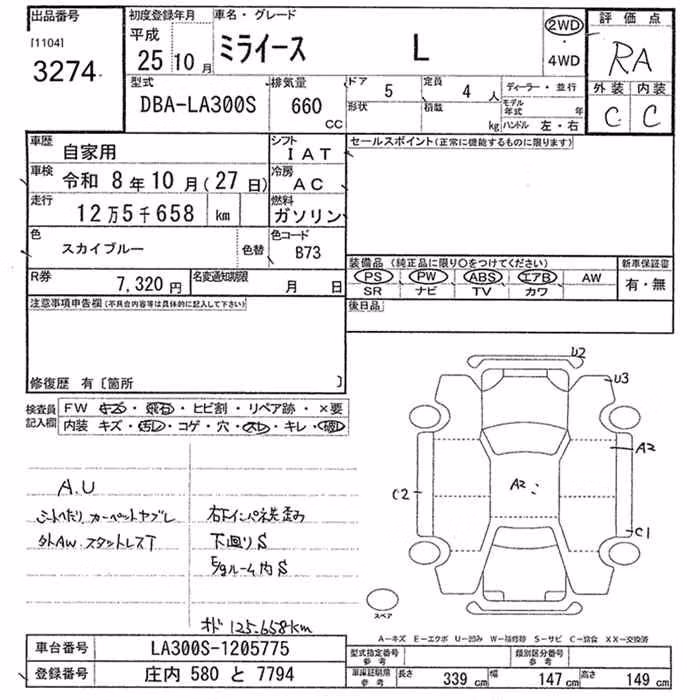 出品番号 初度登録年月 車名・グレード 評価点
[1104] 平成 2WD
3274 25年10月 ミライース L 4WD RA
型式 排気量 ドア 5 定員 4人 ディーラー・並行 外装 内装
DBA-LA300S 660 CC 形状 積載 kg モデル年式 年 C C
ハンドル 左・右
車歴 自家用 シフト IAT セールスポイント(正常に機能するものに限ります)
車検 令和 8年10月(27日) 冷房 AC
走行 12万5千658 km 燃料 ガソリン
色 スカイブルー 色替 色コード B73
装備品 (純正品に限り○をつけてください) 新車保証書
R券 7,320円 名変通知期限 月 日 PS PW ABS エアB AW 有・無
SR ナビ TV カワ
注意事項申告欄(不具合内容等は具体的に記入して下さい) 後日品
修復歴 有〔箇所 〕
検査員 FW キズ・飛石・ヒビ割・リペア跡・×要
記入欄 内装 キズ・汚レ・コゲ・穴・スレ・キレ・破レ
U2
U3
A2
A2
C2
C1
A.U
シートヘタリ カーペットヤブレ 右下インパネ先歪み
外AW.スタッドレスT 下廻りS
E/gルーム内S
オド 125.658km
スペア
A-キズ E-エクボ U-凹み W-補修跡 S-サビ C-腐食 XX-交換済
車台番号 LA300S-1205775 型式指定番号 参考 類別区分番号 参考
登録番号 庄内 580 と 7794 車庫証明用 参考 長さ 339 cm 幅 147 cm 高さ 149 cm